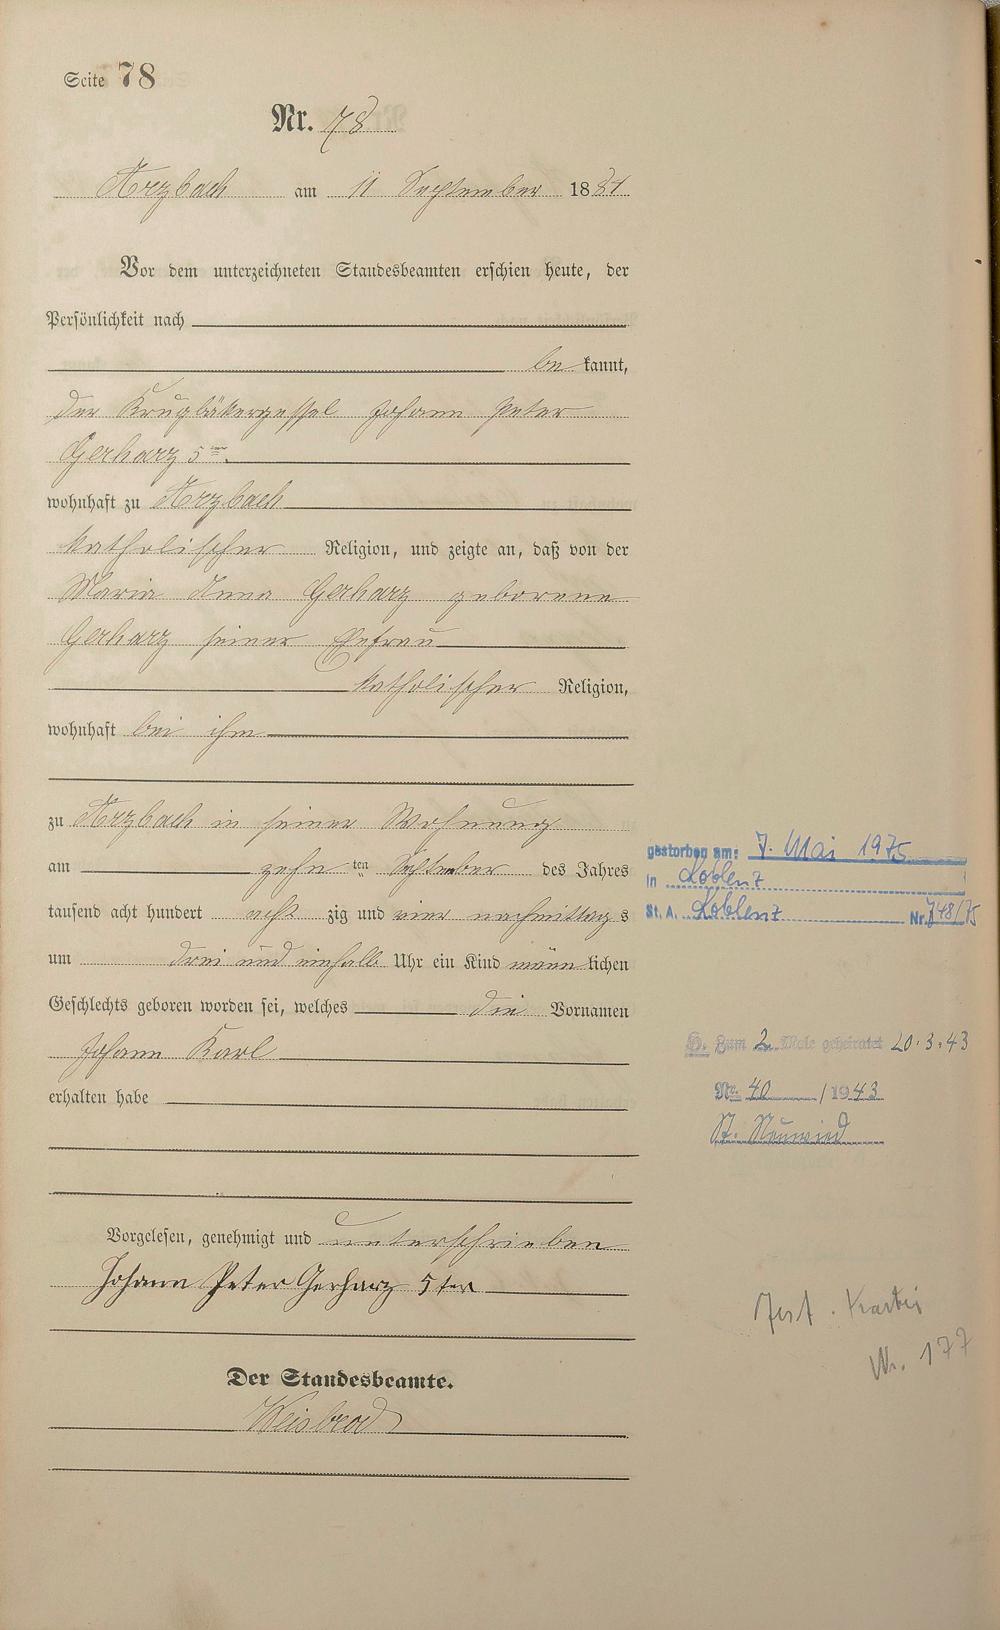 Seite 78
Nr. 78
Arzbach am 11 September 1884
Vor dem unterzeichneten Standesbeamten erschien heute, der
Persönlichkeit nach
be kannt,
der Krugbäkergesell Johann Peter
Gerharz 5ter
wohnhaft zu Arzbach
katholischer Religion, und zeigte an, daß von der
Maria Anna Gerharz geborene
Gerharz seiner Ehefrau
katholischer Religion,
wohnhaft bei ihm
zu Arzbach in seiner Wohnung
am zehn ten September des Jahres
tausend acht hundert acht zig und vier nachmittag s
um drei und einhalb Uhr ein Kind männ lichen
Geschlechts geboren worden sei, welches die Vornamen
Johann Karl
erhalten habe
Vorgelesen, genehmigt und unterschrieben
Johann Peter Gerharz 5ter
Der Standesbeamte.
Weisbrod
gestorben am: 7. Mai 1975
in Koblenz
St. A. Koblenz Nr. 748/75
Zum 2. Male geheiratet 20.3.43
Nr. 40 / 1943
St. Neuwied
Nr. 177